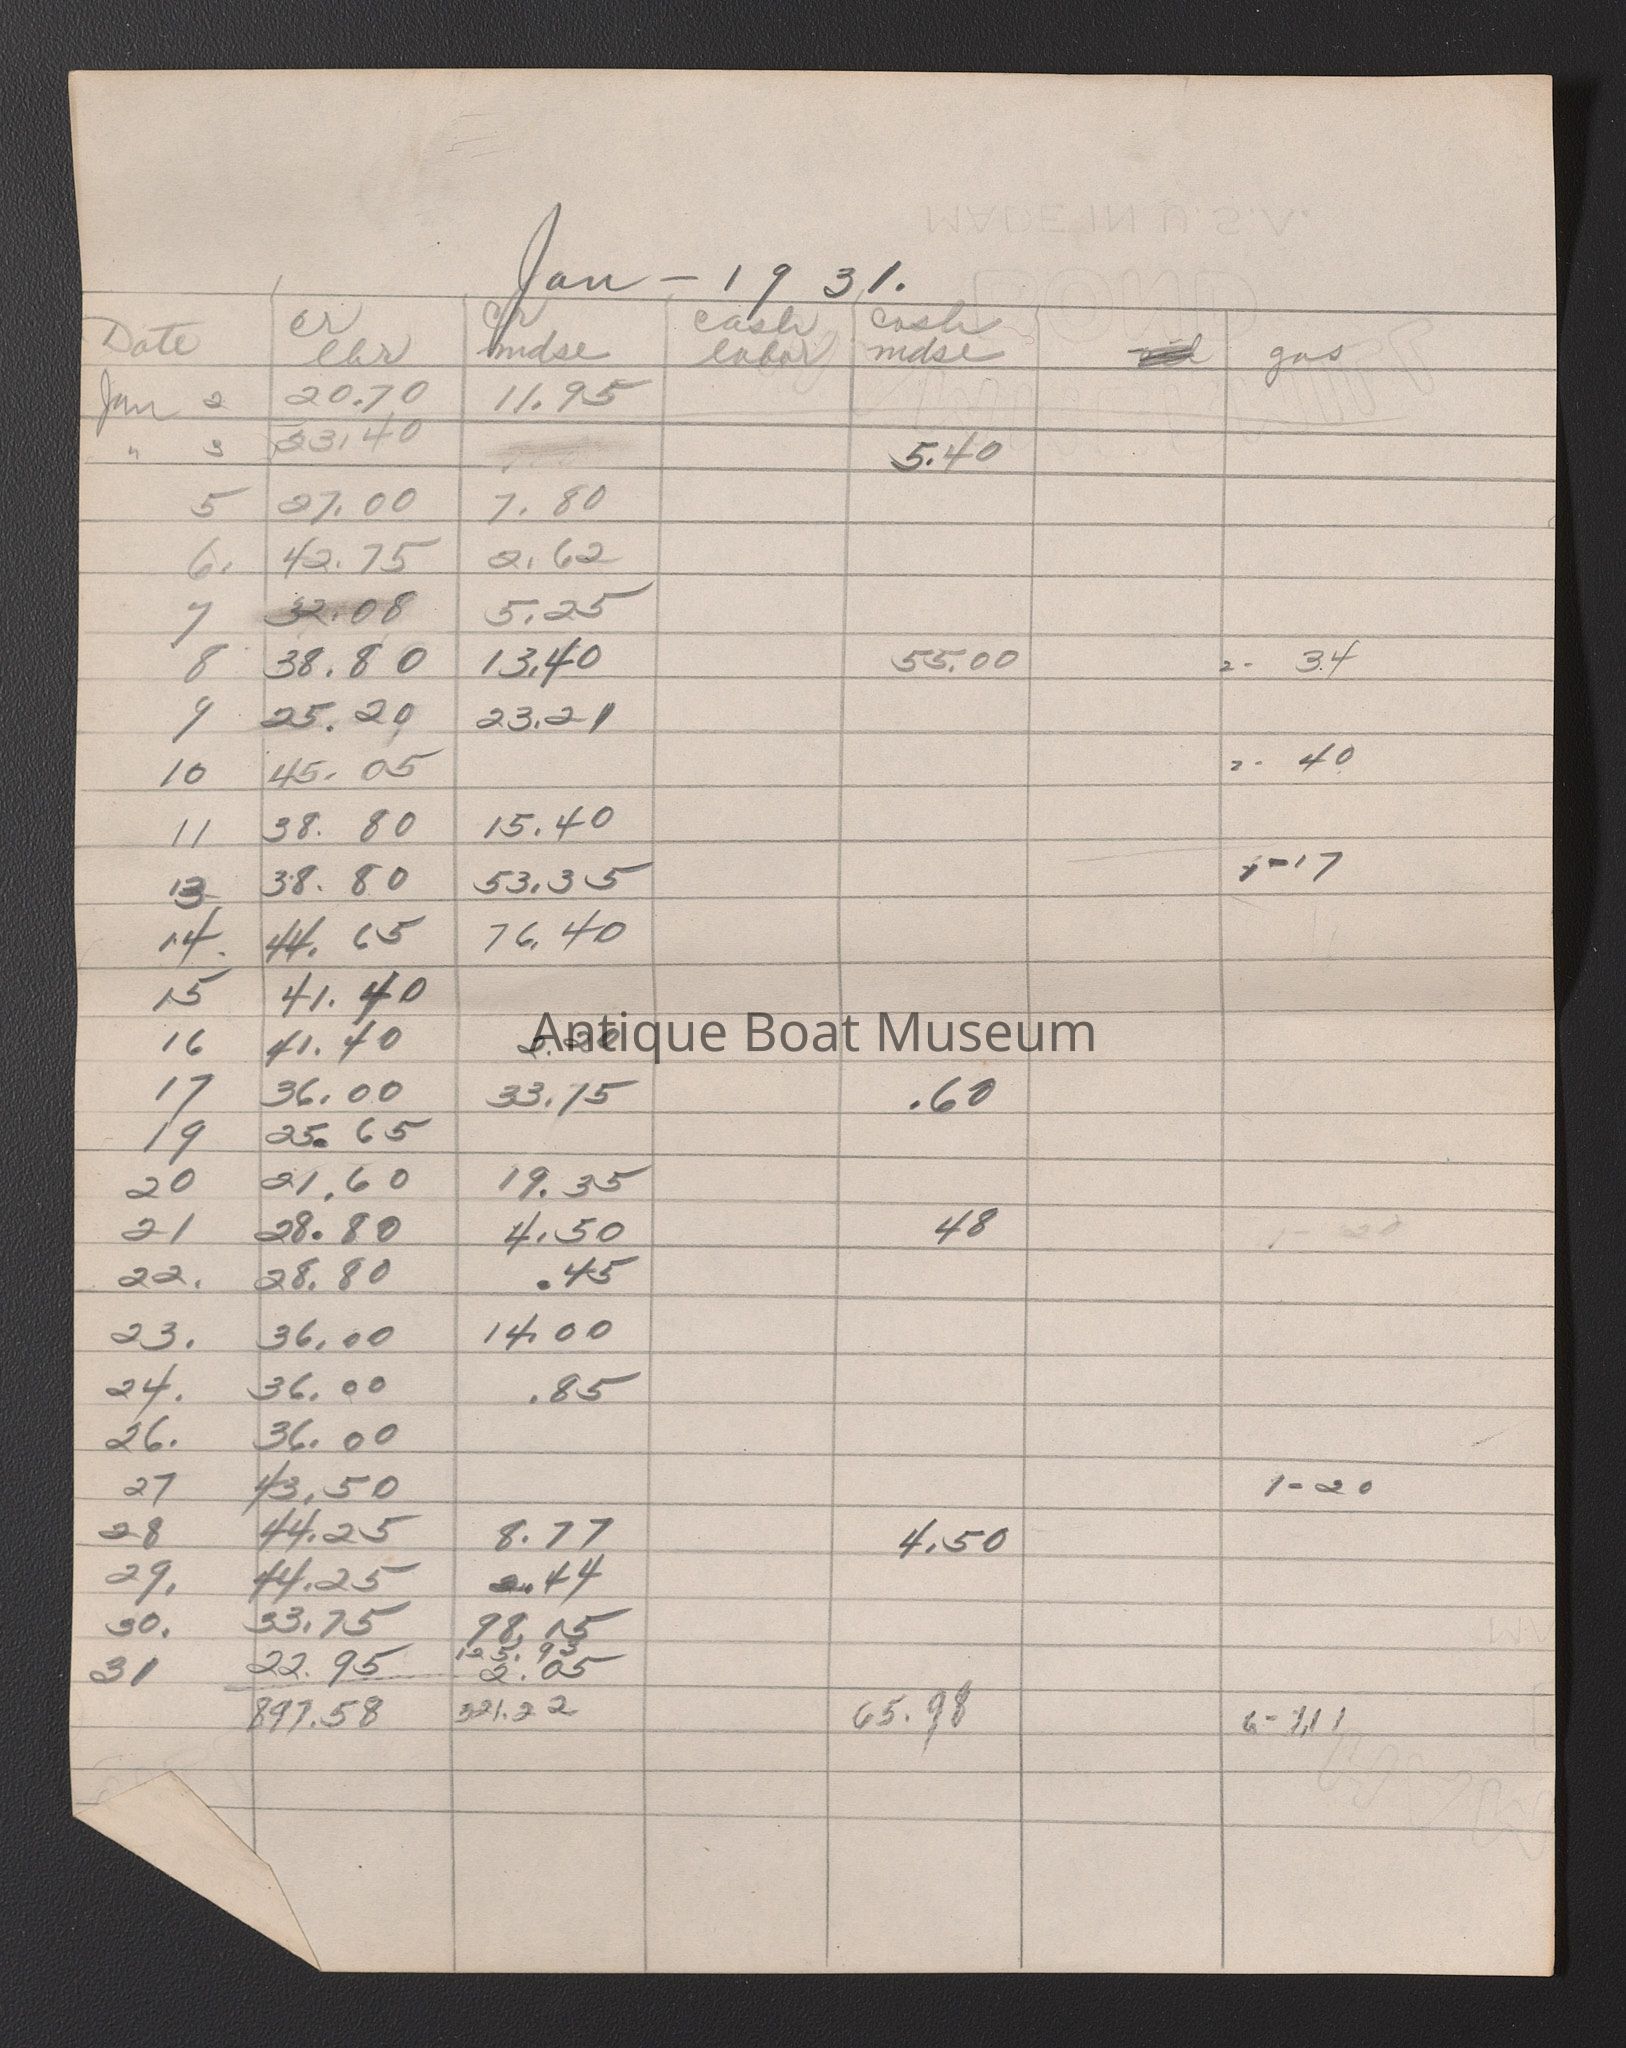 Jan - 1931.
Date cr lbr cr mdse cash labor cash mdse gas
Jan 2 20.70 11.95
" 3 23.40 5.40
5 27.00 7.80
6. 42.75 2.62
7 32.08 5.25
8 38.80 13.40 55.00 2- 34
9 25.20 23.21
10 45.05 2- 40
11 38.80 15.40
13 38.80 53.35 1-17
14. 44.65 76.40
15 41.40
16 41.40
17 36.00 33.75 .60
19 25.65
20 21.60 19.35
21 28.80 4.50 48
22. 28.80 .45
23. 36.00 14.00
24. 36.00 .85
26. 36.00
27 43.50 1-20
28 44.25 8.77 4.50
29. 44.25 2.44
30. 33.75 98.15
125.93
31 22.95 2.05
897.58 321.22 65.98 6-1,11
MADE IN U.S.A.
Antique Boat Museum